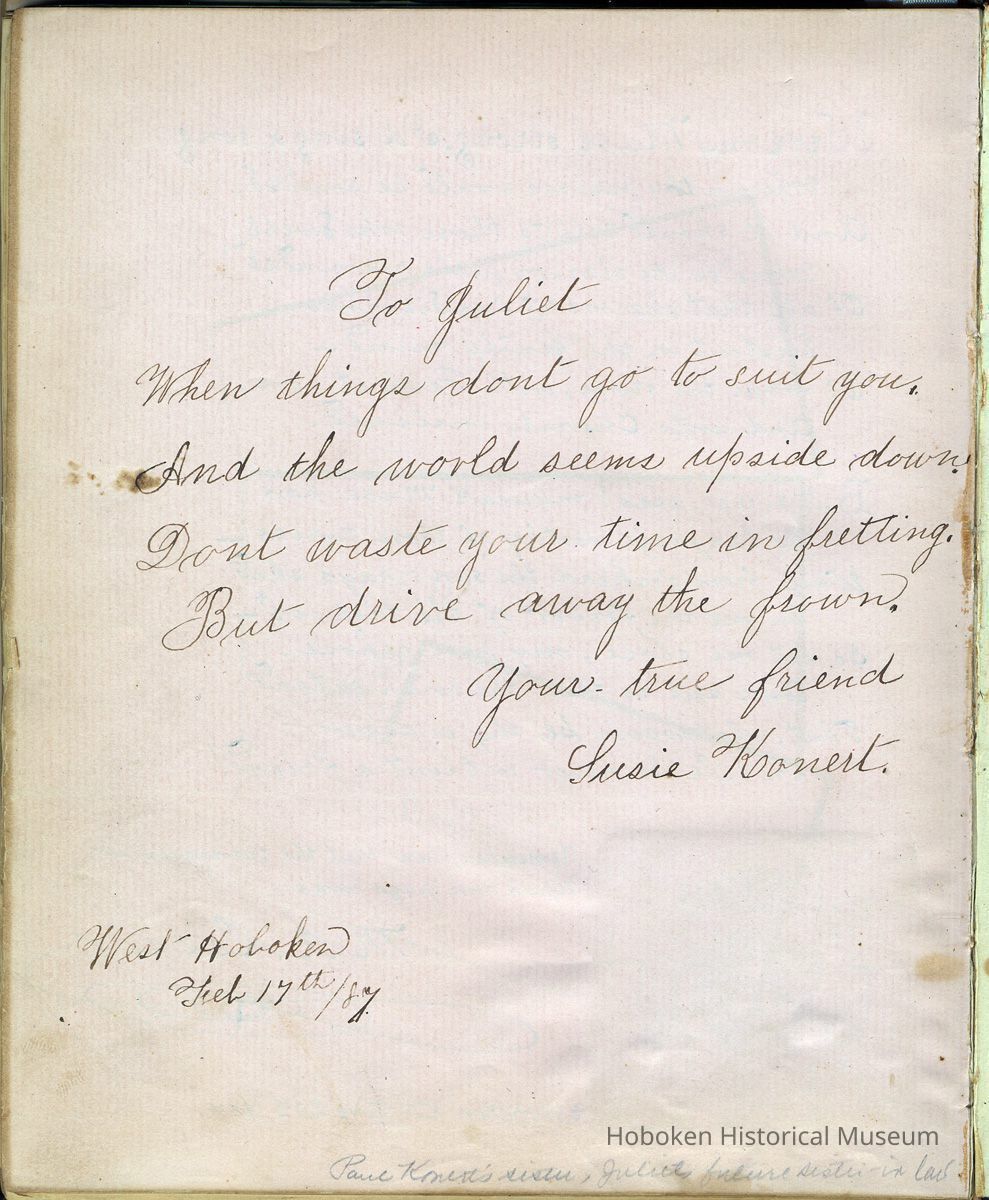 To Juliet
When things dont go to suit you.
And the world seems upside down.
Dont waste your time in fretting.
But drive away the frown.
Your true friend
Susie Konert.
West Hoboken
Feb 17th/87
Hoboken Historical Museum
Paul Konert's sister, Juliet's future sister-in law